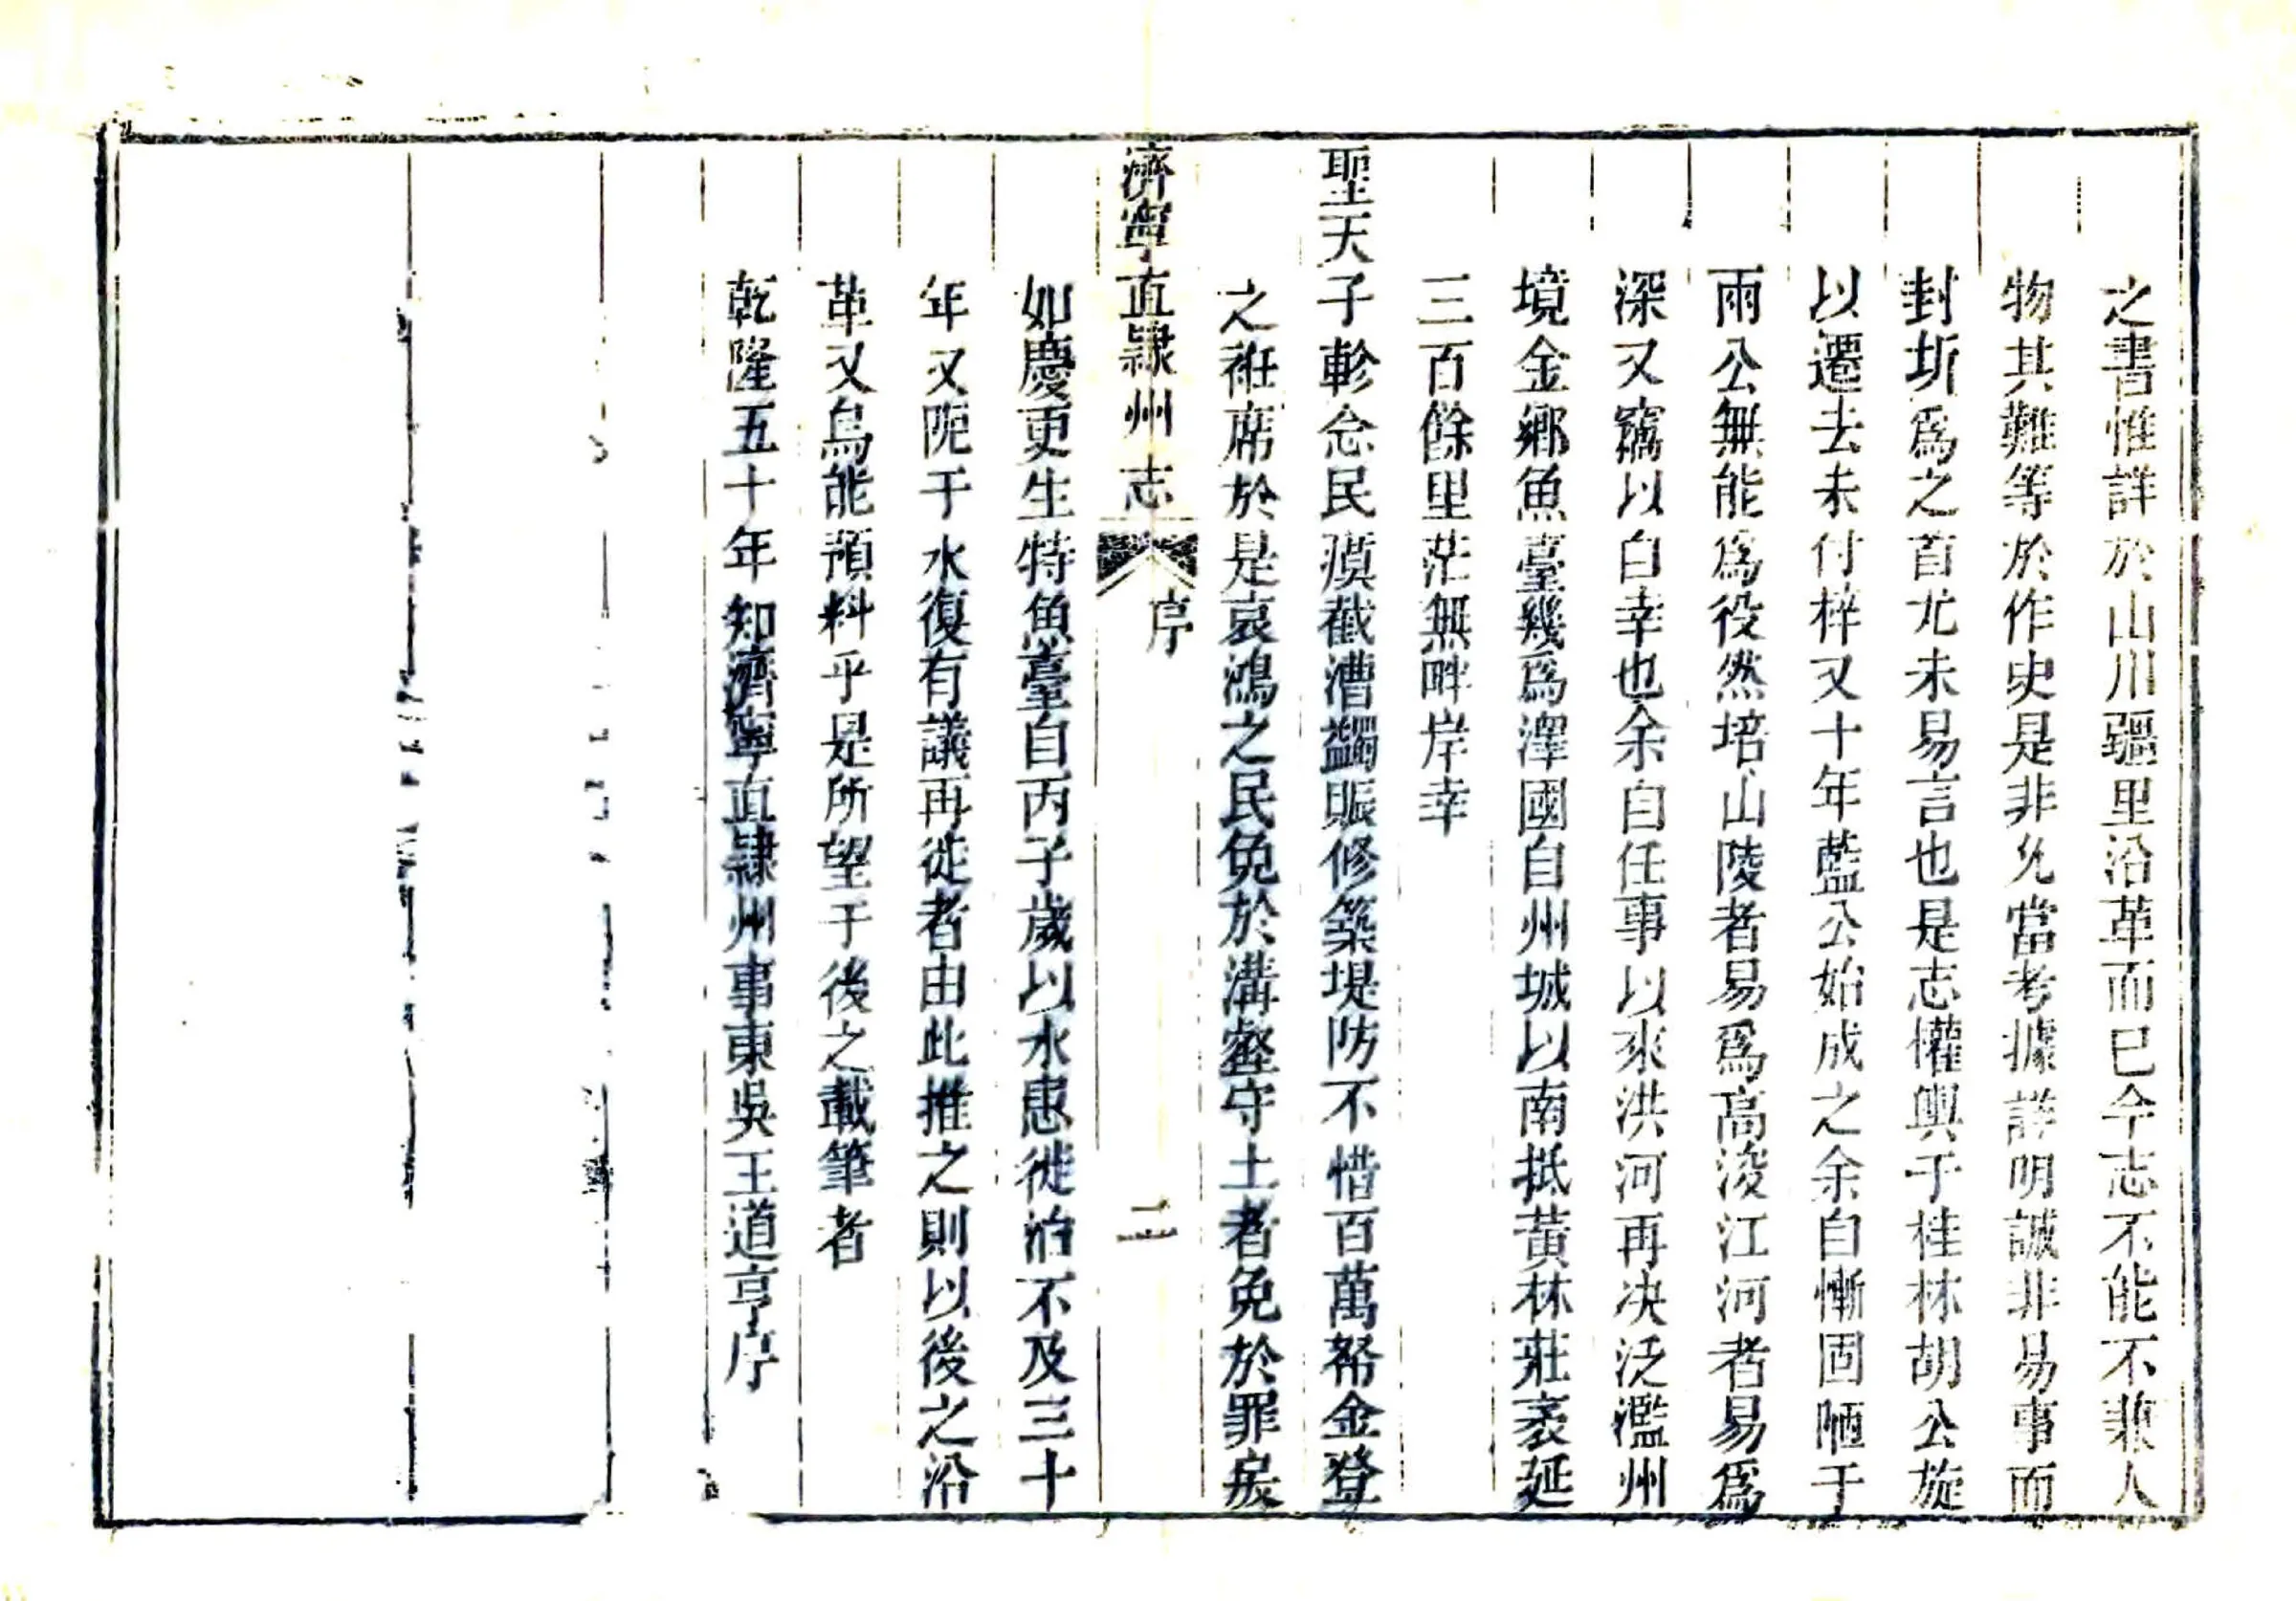 之書惟詳於山川疆里沿革而已今志不能不兼人
物其難等於作史是非允當考據詳明誠非易事而
封圻爲之首尤未易言也是志權輿于桂林胡公旋
以遷去未付梓又十年藍公始成之余自慚固陋于
兩公無能爲役然培山陵者易爲高浚江河者易爲
深又竊以自幸也余自任事以來洪河再决泛濫州
境金鄉魚臺幾爲澤國自州城以南抵黃林莊袤延
三百餘里茫無畔岸幸
聖天子軫念民瘼截漕蠲賑修築堤防不惜百萬帑金登
之衽席於是哀鴻之民免於溝壑守土者免於罪戾
濟寧直隷州志 序 二
如慶更生特魚臺自丙子歲以水患徙治不及三十
年又阨于水復有議再徙者由此推之則以後之沿
革又烏能預料乎是所望于後之載筆者
乾隆五十年知濟寧直隷州事東吳王道亨序